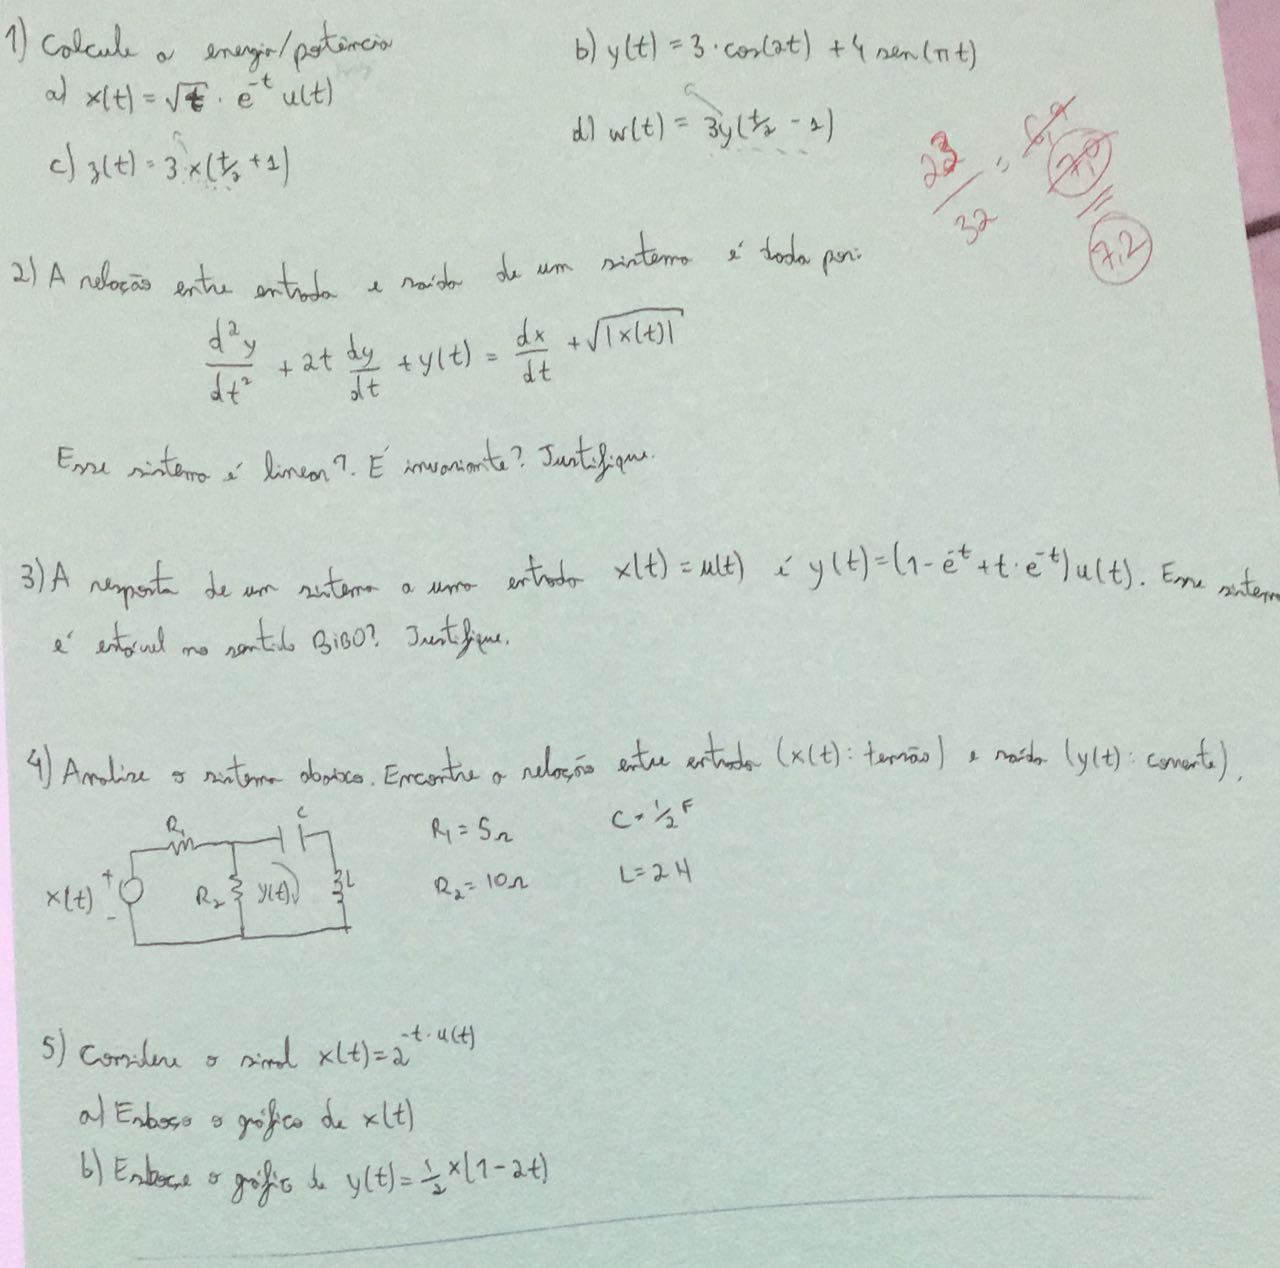 1) Calcule a energia/potência
a) x(t) = √t · e^-t u(t)
b) y(t) = 3 · cos(2t) + 4 sen(πt)
c) z(t) = 3 x(t/2 + 1)
d) w(t) = 3y(t/2 - 1)
23/32 = 6,9
7,0
=
7,2
2) A relação entre entrada e saída de um sistema é dada por:
d²y/dt² + 2t dy/dt + y(t) = dx/dt + √|x(t)|
Esse sistema é linear? É invariante? Justifique.
3) A resposta de um sistema a uma entrada x(t) = u(t) é y(t) = (1 - e^-t + t · e^-t) u(t). Esse sistema
é estável no sentido BIBO? Justifique.
4) Analise o sistema abaixo. Encontre a relação entre entrada (x(t): tensão) e saída (y(t): corrente).
R1
C
x(t)
+
-
R2
y(t)
L
R1 = 5Ω
C = 1/2 F
R2 = 10Ω
L = 2 H
5) Considere o sinal x(t) = 2^-t·u(t)
a) Esboço o gráfico de x(t)
b) Esboce o gráfico de y(t) = 1/2 x(1 - 2t)